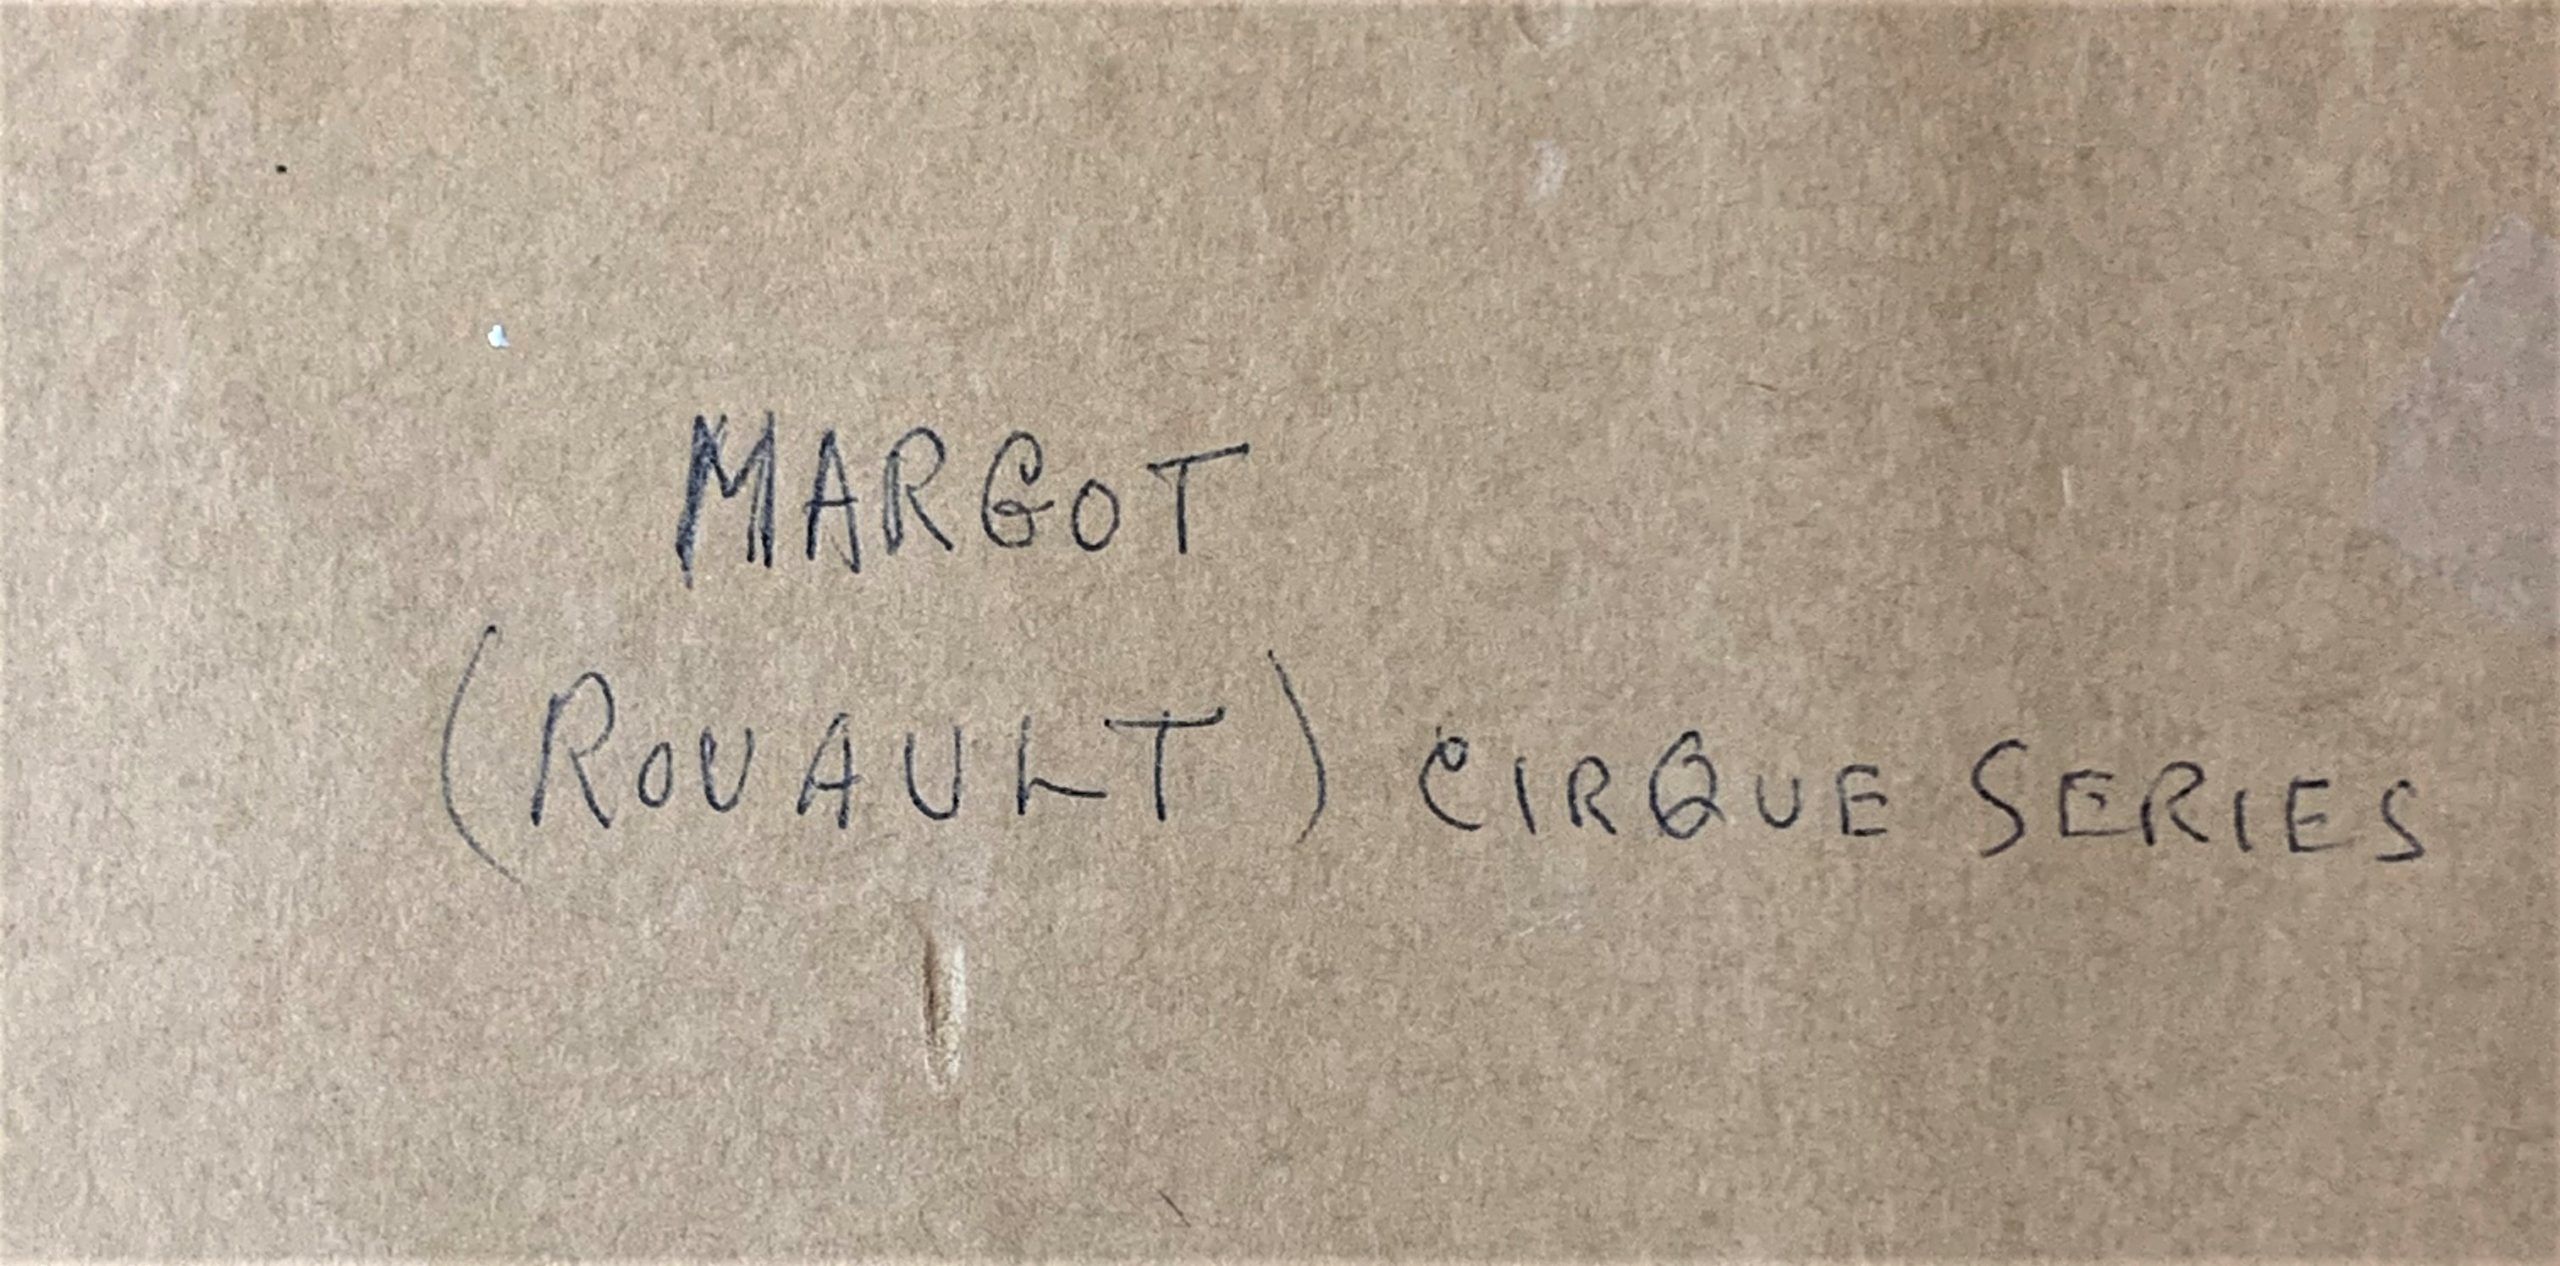 MARGOT
(ROUAULT) CIRQUE SERIES